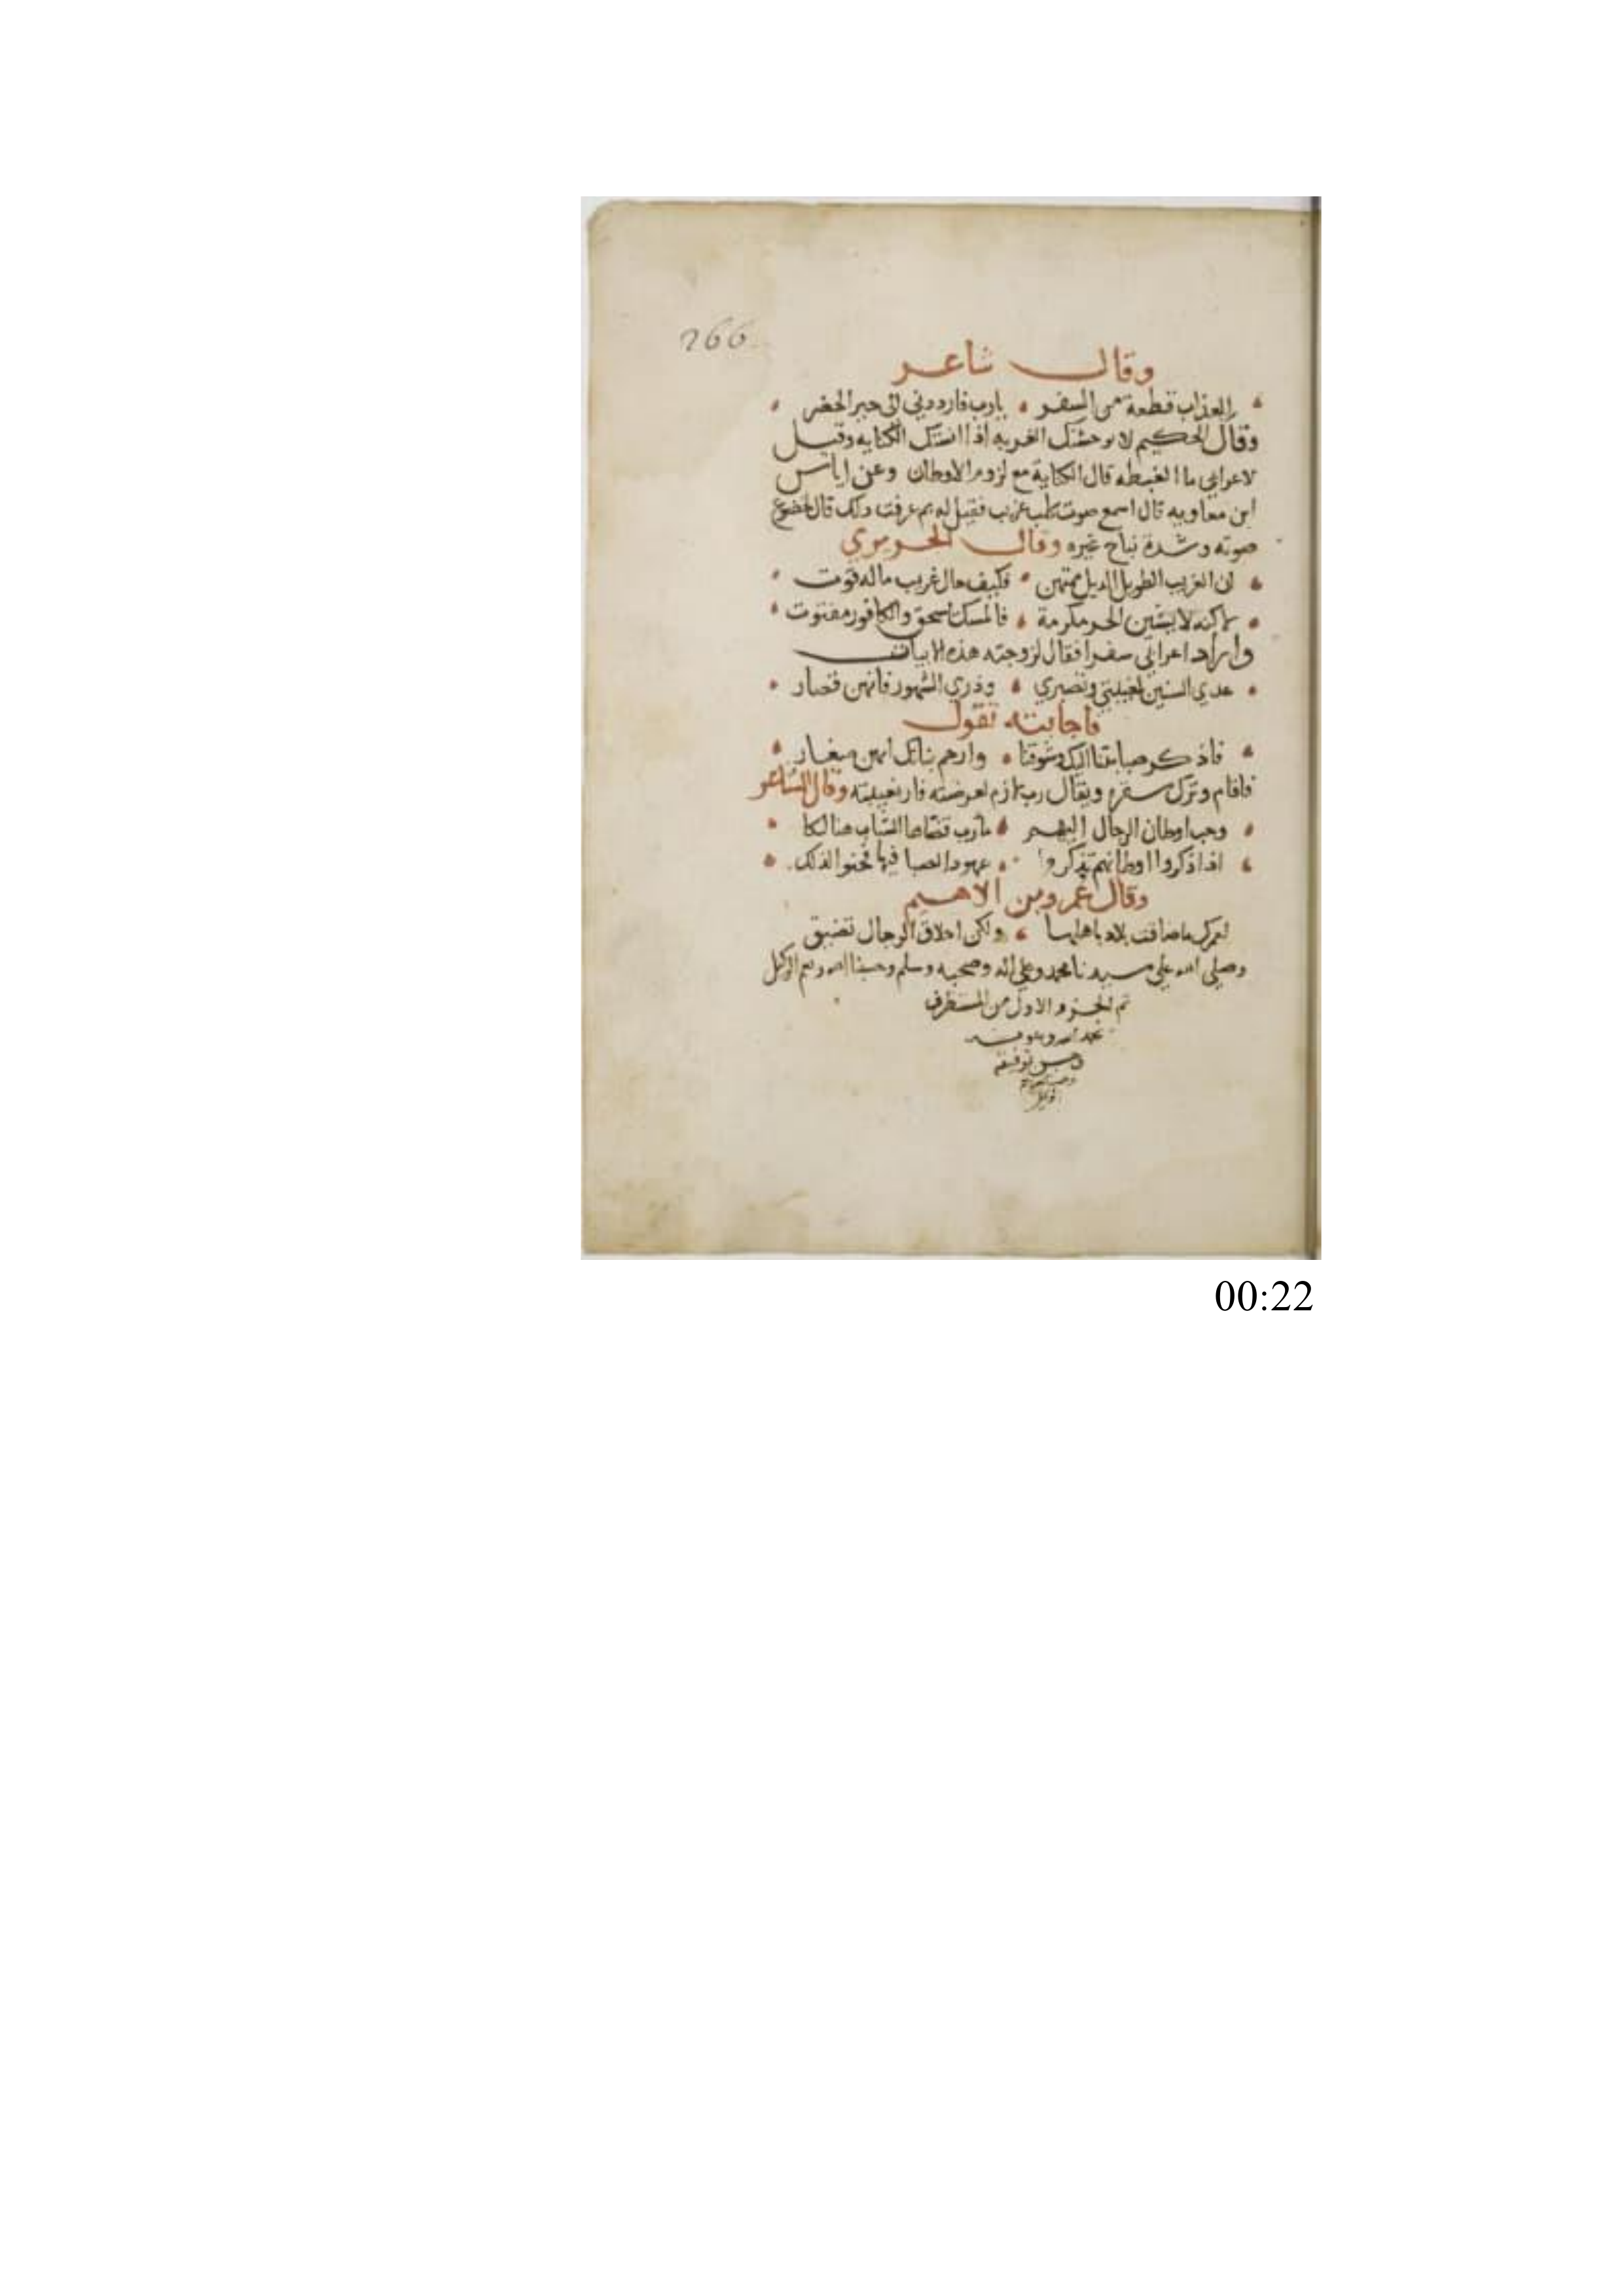 266
وقال شاعر
العذاب قطعة من السفر يارب فارددني الى خير الحضر
وقال الحكيم لا توحشنك الغربه اذا انستك الكفايه وقيل
لاعرابي ما الغبطه قال الكفاية مع لزوم الاوطان وعن اياس
ابن معاويه قال اسمع صوت كلب غريب فقيل له بم عرفت ذلك قال لخضوع
صوته وشدة نباح غيره وقال الحريري
ان الغريب الطويل الذيل ممتهن فكيف حال غريب ماله قوت
لكنه لا يشين الحر مكرمة فالمسك يسحق والكافور مفتوت
واراد اعرابي سفرا فقال لزوجته هذه الابيات
عدي السنين لغيبتي وتصبري وذري الشهور فانهن قصار
فاجابته تقول
فاذكر صبابتنا اليك وشوقنا وارحم بناتك انهن صغار
فاقام وترك سفره ويقال رب وقال الشاعر
وحب اوطان الرجال اليهم مارب قضاها الشباب هنالكا
اذا ذكروا اوطانهم تذكروا عهود الصبا فيها فحنوا لذلك
وقال عمرو بن الاهيم
لعمرك ما ضاقت بلاد باهلها ولكن اخلاق الرجال تضيق
وصلى الله علي سيدنا محمد وعلي اله وصحبه وسلم وحسبنا الله ونعم الوكيل
تم الجزء الاول من المستطرف
بحمد الله وعونه
وحسن توفيقه
00:22